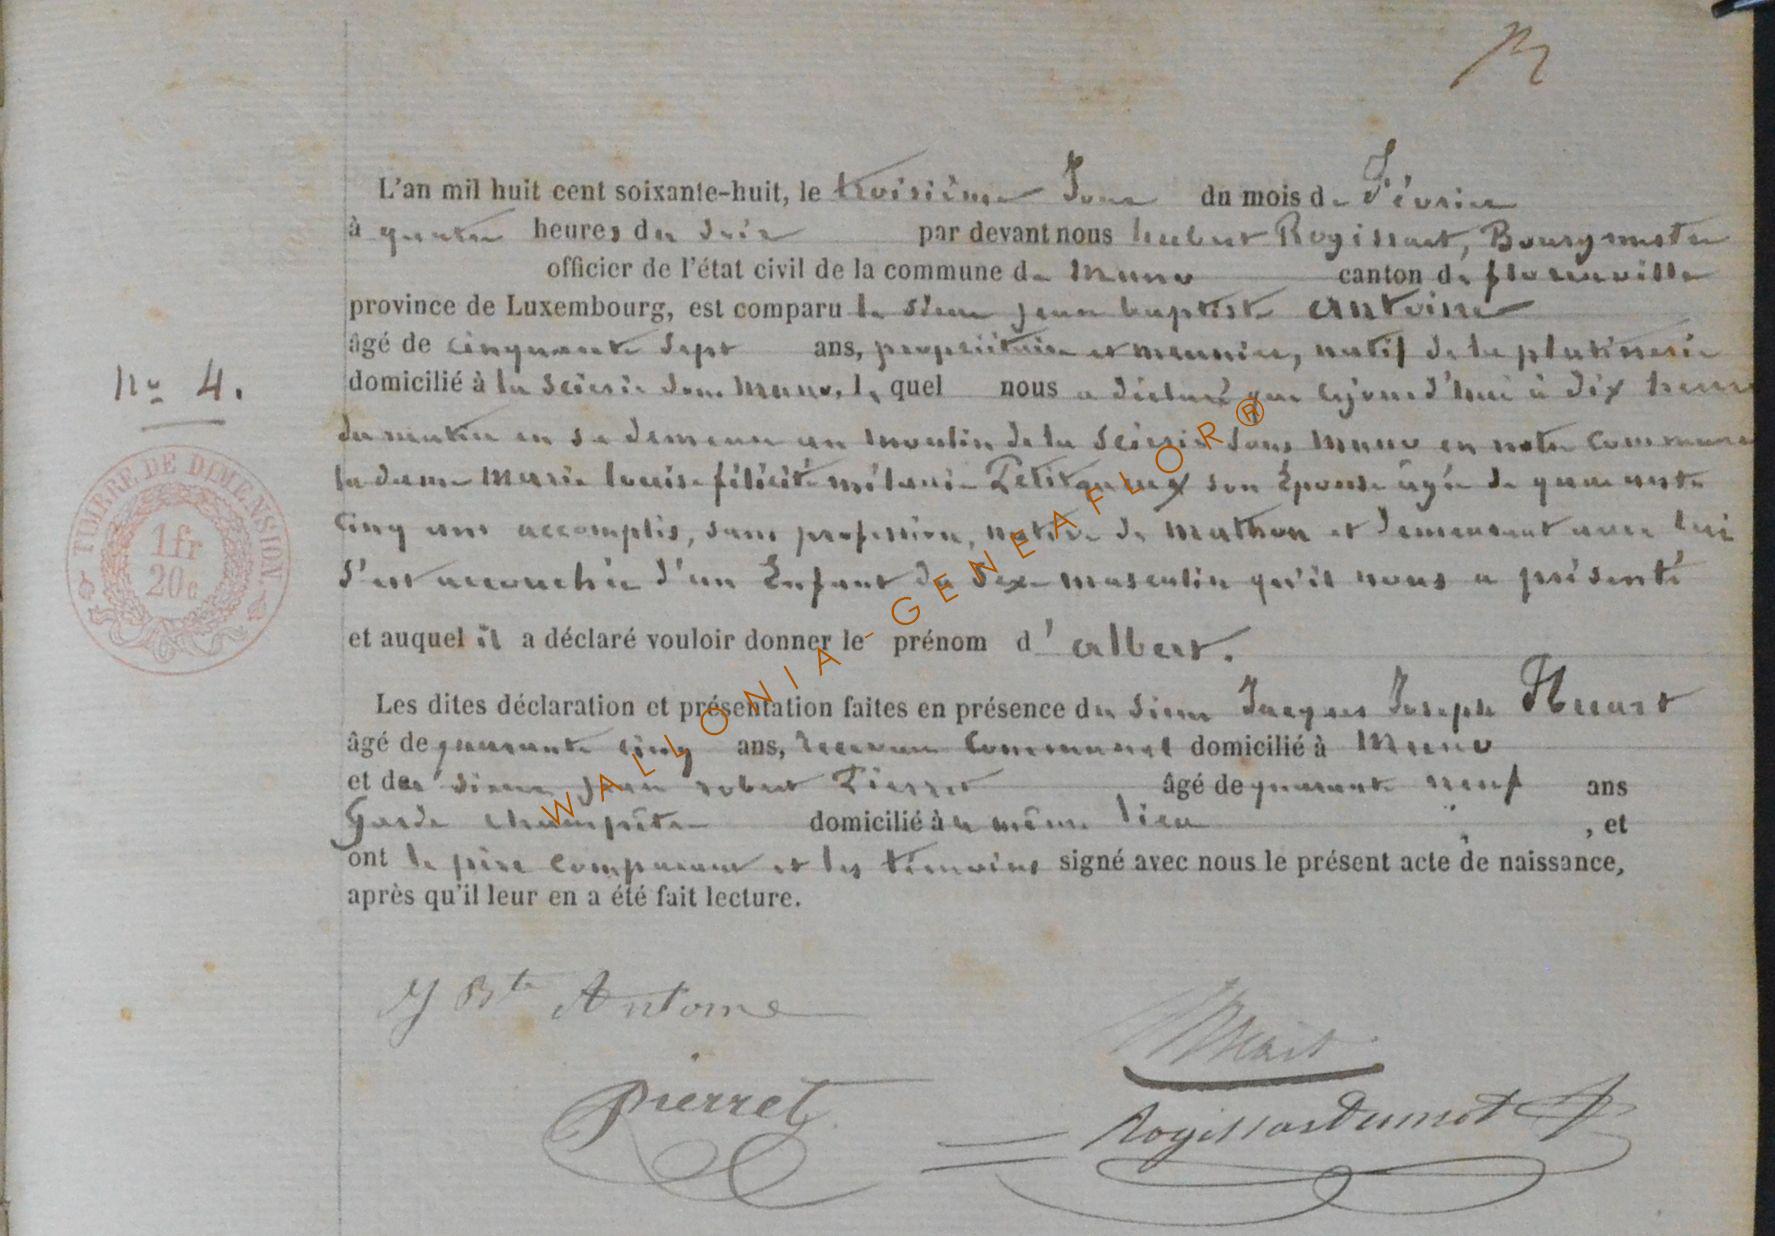 L'an mil huit cent soixante-huit, le troisième Jour du mois de Février
à quatre heures du soir par devant nous hubert Rogissart, Bourgmestre
officier de l'état civil de la commune de Muno canton de florenville
province de Luxembourg, est comparu le sieur jean baptiste Antoine
âgé de cinquante sept ans, propriétaire et meunier, natif de la platinerie
No 4.
domicilié à la Scierie sous Muno, le quel nous a déclaré que cejourd'hui à dix heures
du matin en sa demeure au moulin de la Scierie sous Muno en notre Commune
la dame Marie louise félicité mélanie Petitgaux son Épouse âgée de quarante
Cinq ans accomplis, sans profession, native de Mathon et demeurant avec lui
S'est accouchée d'un Enfant du Sexe masculin qu'il nous a présenté
TIMBRE DE DIMENSION
1fr
20c
et auquel il a déclaré vouloir donner le prénom d'albert.
Les dites déclaration et présentation faites en présence du sieur Jacques Joseph Huart
âgé de quarante cinq ans, receveur Communal domicilié à Muno
et du sieur jean robert Pierret âgé de quarante neuf ans
Garde champêtre domicilié à même lieu , et
ont le père comparant et les témoins signé avec nous le présent acte de naissance,
après qu'il leur en a été fait lecture.
J Bte Antoine
Huart
Pierret
Rogissart Dumont
WALLONIA-GENEAFLOR®